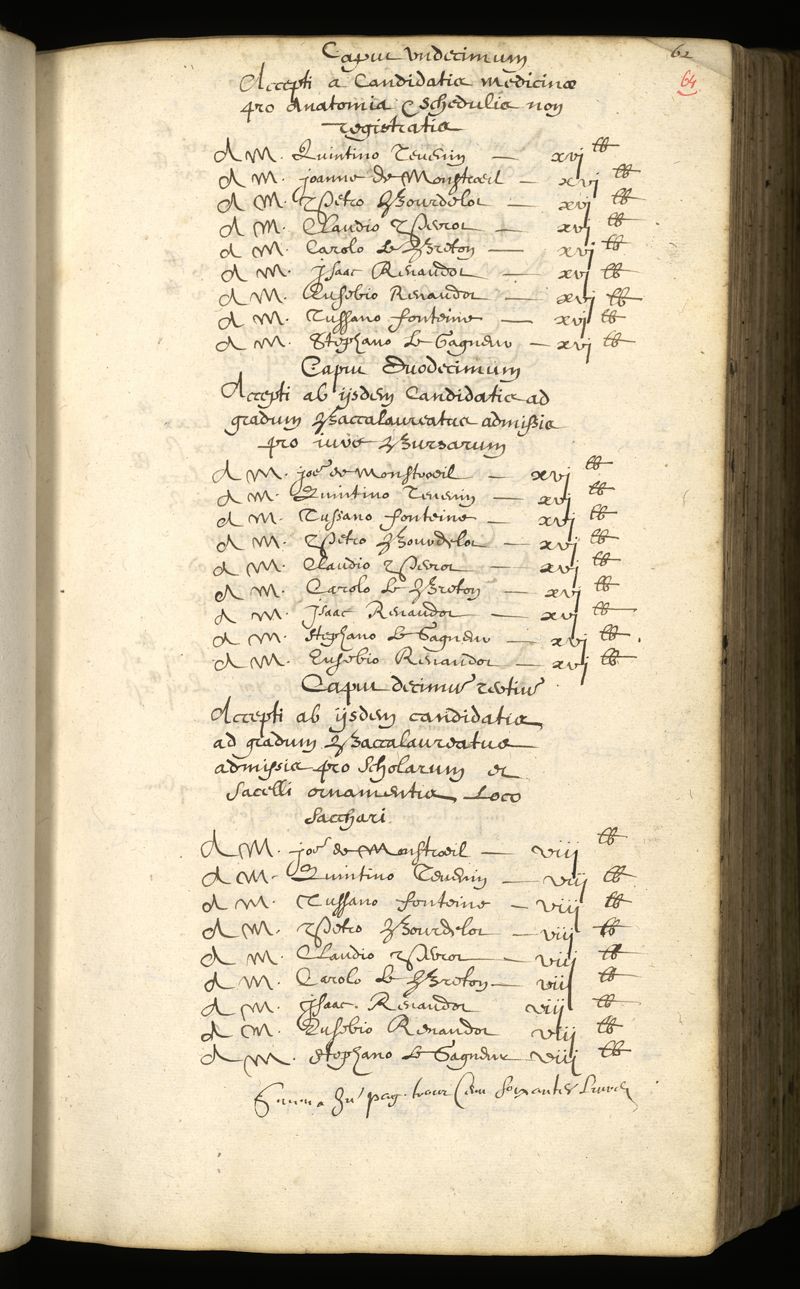 62
64
Caput undecimum
Accepti a Candidatis medicinæ
pro Anatomia & schedulis non
registratis
A M. Quintino Tevenin — xvj ₶
A M. joanne de Monstroeil — xvj ₶
A M. Petro Bourdelot — xvj ₶
A M. Claudio Perrot — xvj ₶
A M. Carolo Le Breton — xvj ₶
A M. Isaac Renaudot — xvj ₶
A M. Eusebio Renaudot — xvj ₶
A M. Tussano fonteine — xvj ₶
A M. Stephano Le Gagneur — xvj ₶
Caput Duodecimum
Accepti ab ijsdem Candidatis ad
gradum Baccalaureatus admissis
pro iure Bursarum
A M. joe de Monstroeil — xvj ₶
A M. Quintino Tevenin — xvj ₶
A M. Tussano fonteine — xvj ₶
A M. Petro Bourdelot — xvj ₶
A M. Claudio Perrot — xvj ₶
A M. Carolo Le Breton — xvj ₶
A M. Isaac Renaudot — xvj ₶
A M. Stephano Le Gagneur — xvj ₶
A M. Eusebio Renaudot — xvj ₶
Caput decimũ tertiũ
Accepti ab ijsdem candidatis
ad gradum Baccalaureatus
admissis pro Scholarum et
Sacelli ornamentis, Loco
Sacchari
A M. joe de Monstroeil — viij ₶
A M. Quintino Tevenin — viij ₶
A M. Tussano fonteine — viij ₶
A M. Petro Bourdelot — viij ₶
A M. Claudio Perrot — viij ₶
A M. Carolo Le Breton — viij ₶
A M. Isaac Renaudot viij ₶
A M. Eusebio Renaudot viij ₶
A M. Stephano Le Gagneur viij ₶
Summa hu' pag. trois Cens soixante Livres